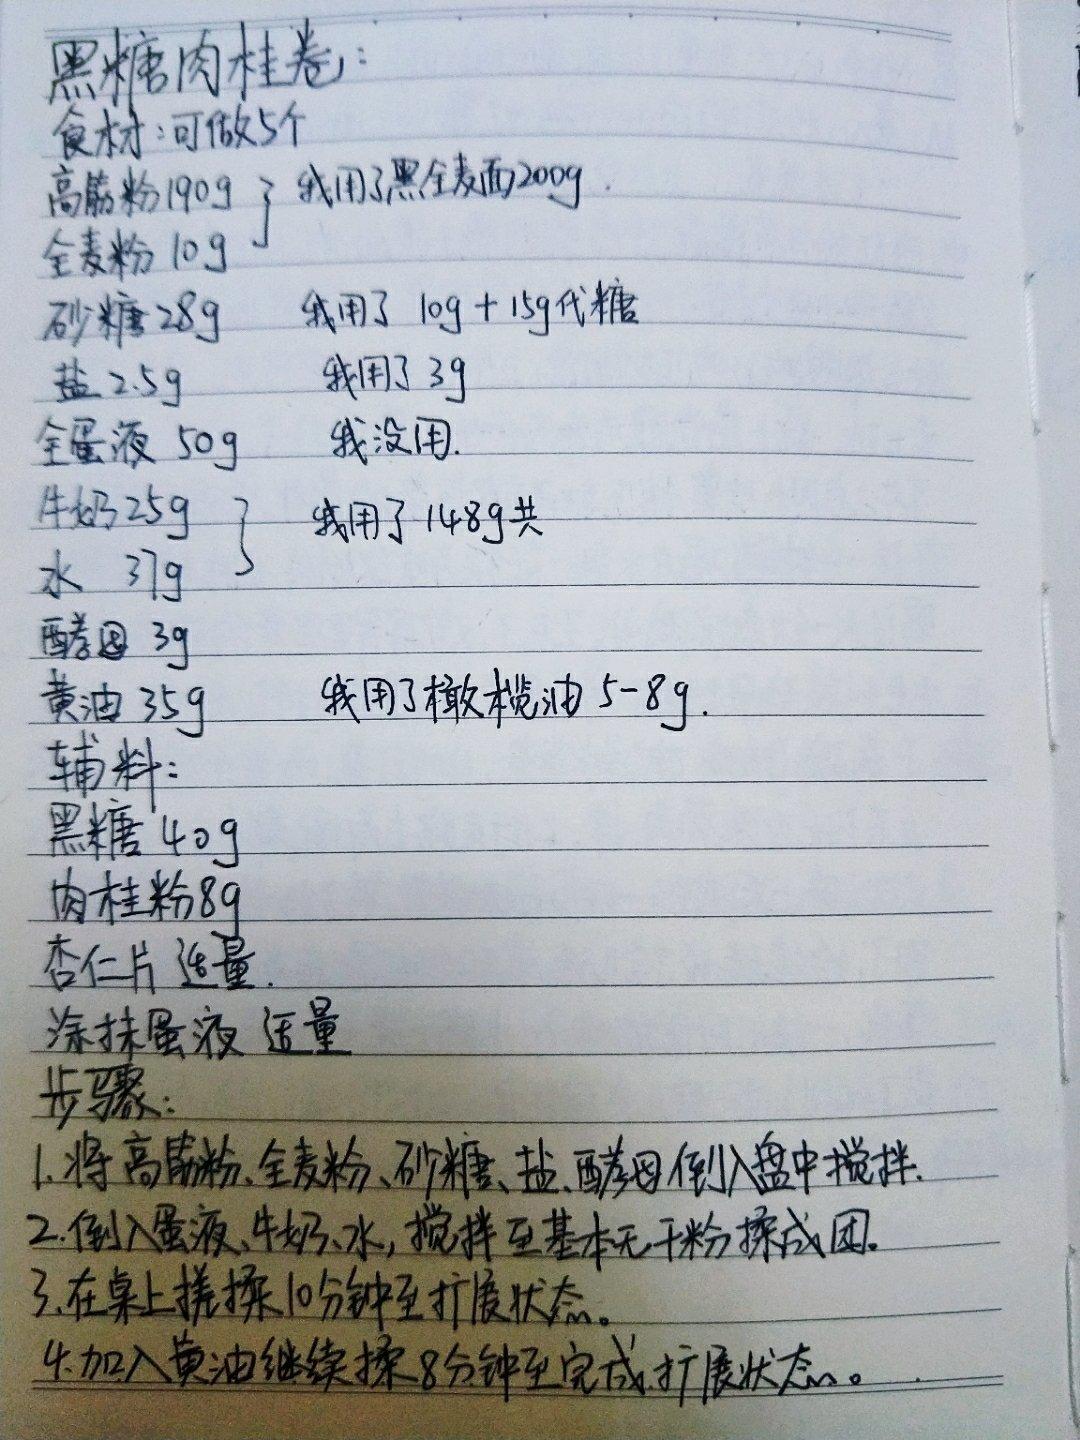 黑糖肉桂卷:
食材:可做5个
高筋粉190g } 我用了黑全麦面200g.
全麦粉 10g
砂糖28g 我用了 10g+15g代糖
盐 2.5g 我用了 3g
全蛋液 50g 我没用.
牛奶25g } 我用了148g共
水 37g
酵母 3g
黄油 35g 我用了橄榄油 5-8g.
辅料:
黑糖 40g
肉桂粉8g
杏仁片 适量.
涂抹蛋液 适量
步骤:
1.将高筋粉、全麦粉、砂糖、盐、酵母倒入盘中搅拌.
2.倒入蛋液、牛奶、水,搅拌至基本无干粉揉成团。
3.在桌上搓揉10分钟至扩展状态。
4.加入黄油继续揉8分钟至完成扩展状态。